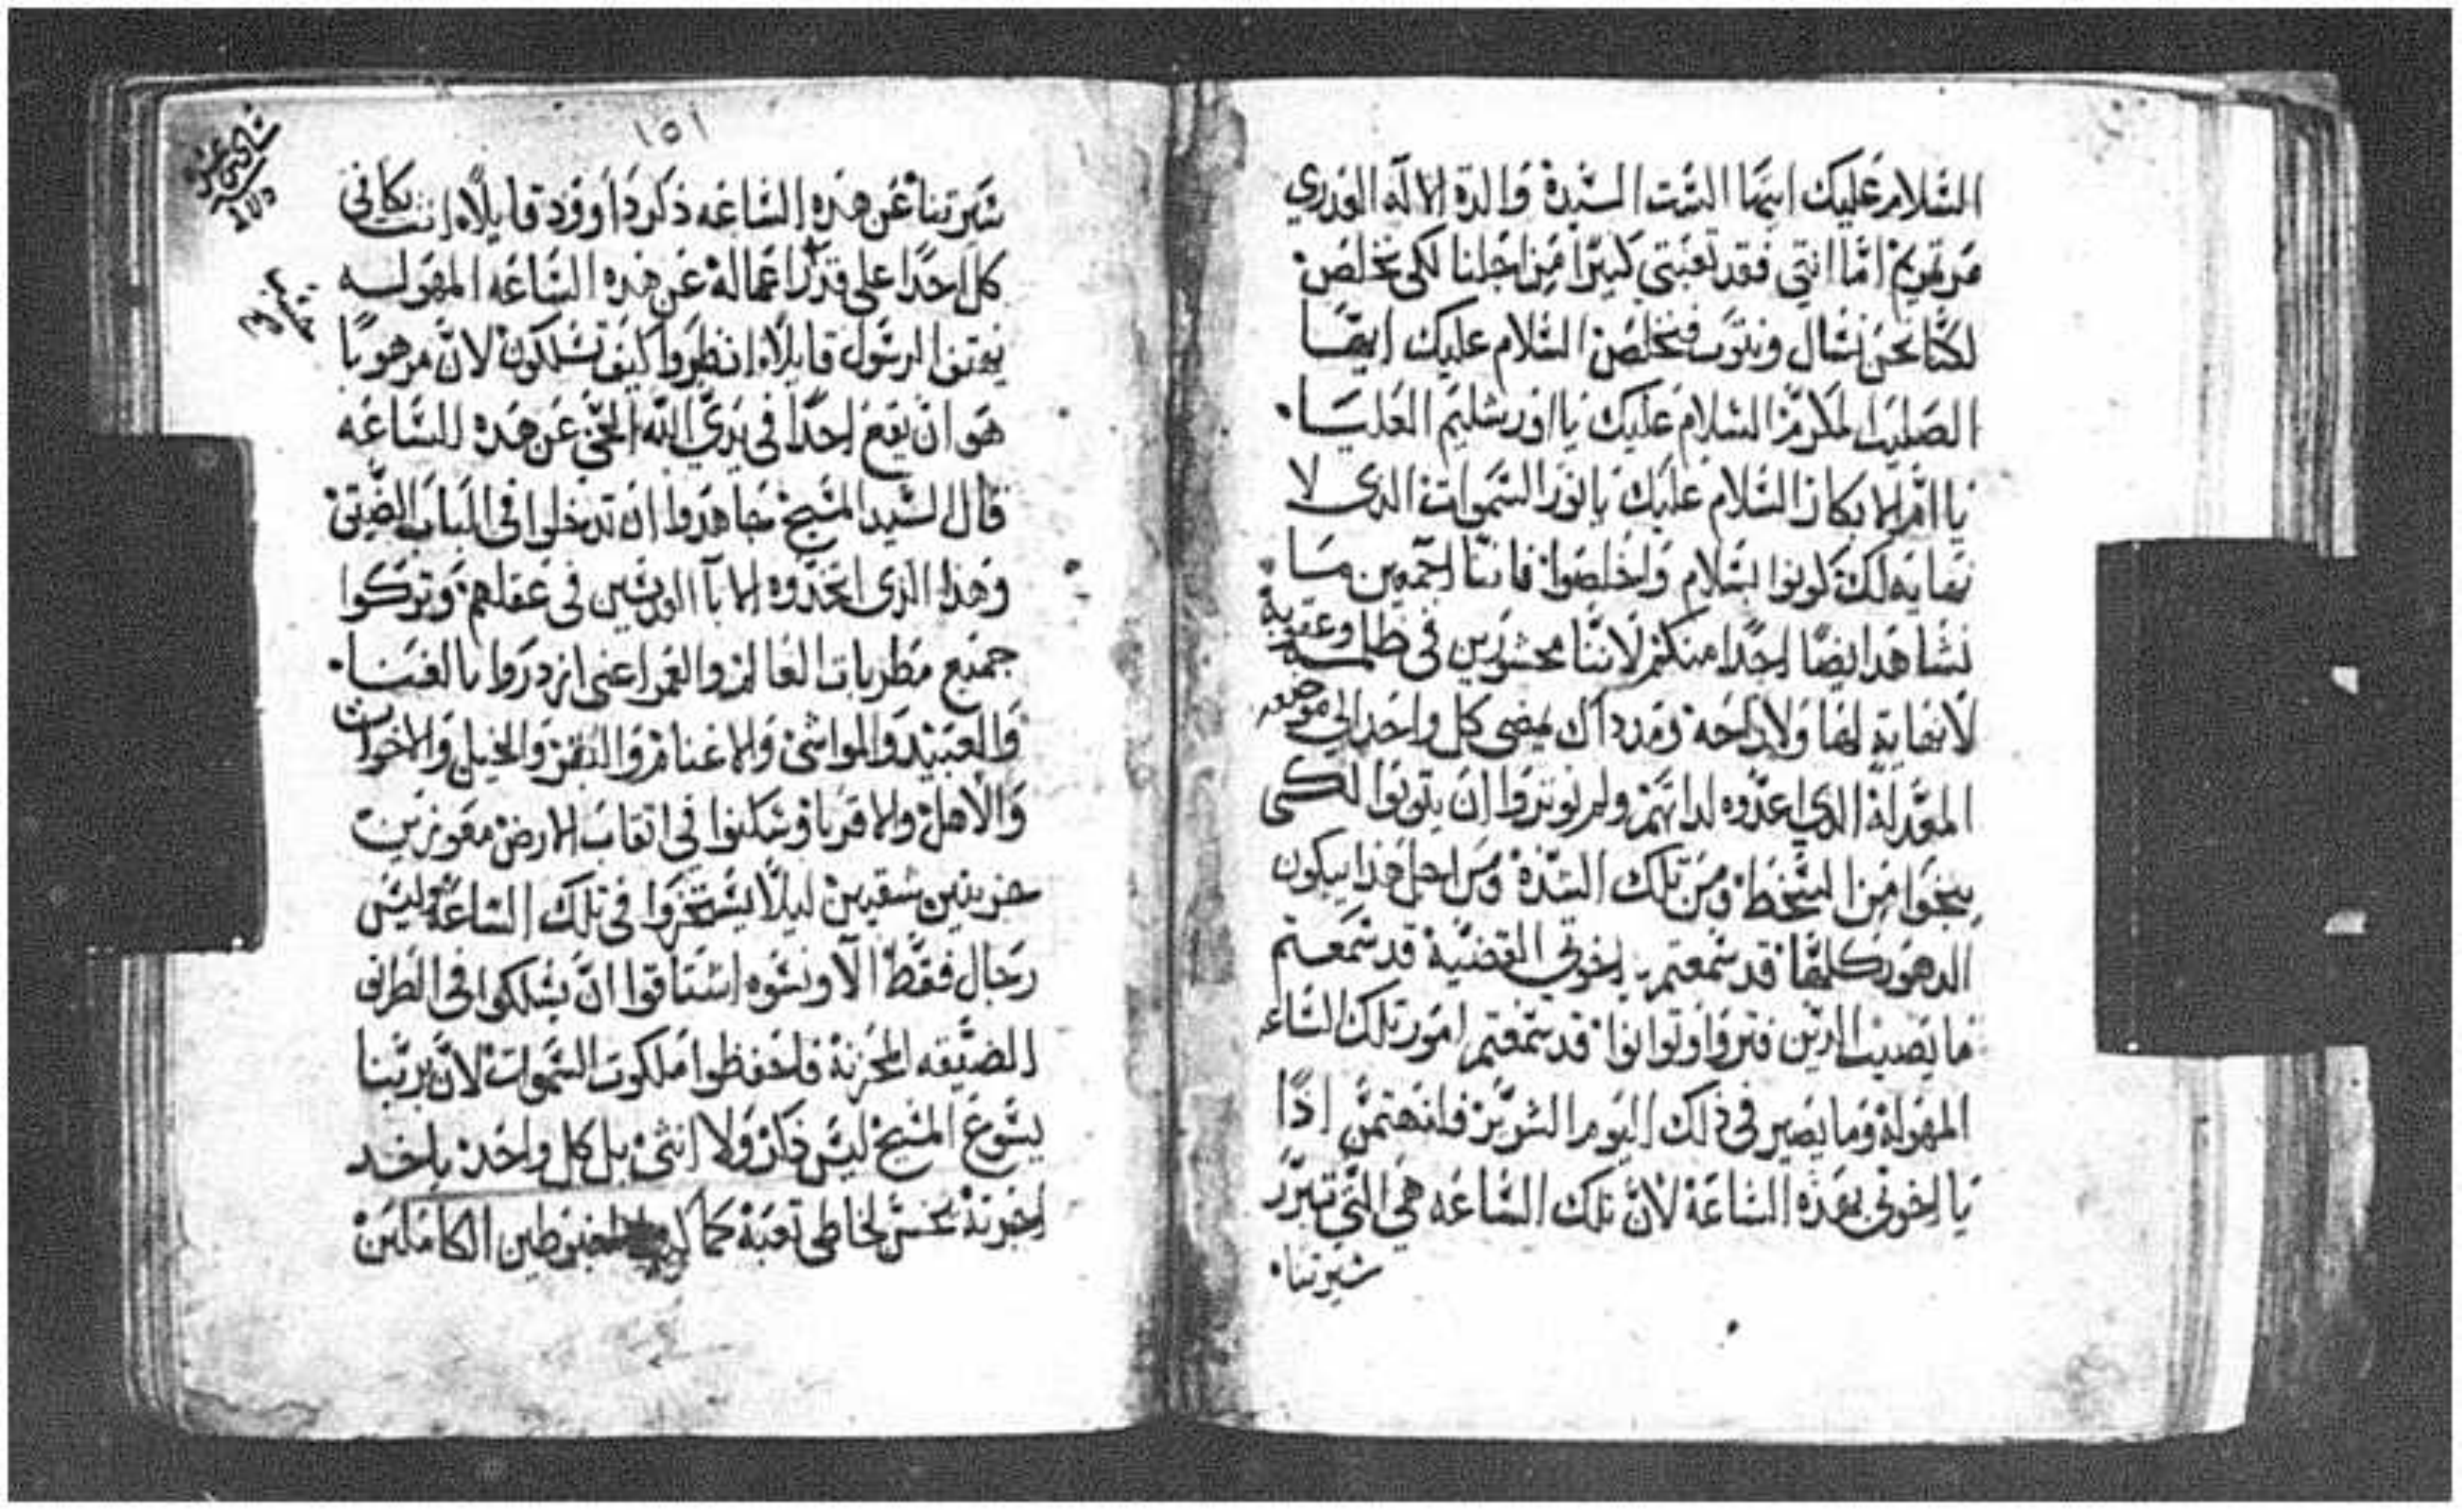 السلام عليك ايتها الست السيدة والدة الاله العدري
مرتمريم اما انتي فقد تعبتي كثيرا من اجلنا لكي نخلص
لكنا نحن نسال ونتوب فنخلص السلام عليك ايها
الصليب المكرم السلام عليك يا اورشليم العليا
يا ام الابكار السلام عليك يا نور السموات الذي لا
نهايه لك كونوا بسلام واخلصوا فاننا اجمعين ما
نشاهد ايضا احدا منكم لاننا محشورين في ظلمة وعقوبة
لا نهاية لها ولا راحة ومن داك يمضي كل واحد الي موضعه
الذي اعدوه لداتهم ولم يوتروا ان يتوبوا لكي
ينجوا من السخط ومن تلك الشدة ومن اجل هذا يبكون
الدهور كلها قد سمعتم يا اخوتي القضية قد سمعتم
ما يصيب وتوانوا قد سمعتم امور تلك الساعه
المهولة وما يصير في ذلك اليوم فلنهتمن اذا
يا اخوتي بهذه الساعة لان تلك الساعه هي التي تبرر
سيرتنا
١٥١
سيرتنا عن هذه الساعه ذكر داوود قايلا انت تكافي
كل احدا علي قدر اعماله عن هذه الساعه المهوله
يهتف الرسول قايلا انظروا كيف تسلكون لان مرهوبا
هو ان يقع احدا في يدي الله الحي عن هذه الساعه
قال السيد المسيح جاهدوا ان تدخلوا في الباب الضيق
وهذا الذي اتخذوه الابا القديسين في عقلهم وتركوا
جميع مطربات العالم والعمر اعني ازدروا بالغنا
والعبيد والمواشي والاغنام والبقر والخيل والاخوات
والاهل والاقربا وسكنوا في اتقاب الارض معوزين
حزينين شقيين ليلا يستخزوا في تلك الساعة وليس
رجال فقط الا ونسوه اشتاقوا ان يسلكوا في الطرق
الضيقه المحزنة فاحفظوا ملكوت السموات لان بربنا
يسوع المسيح ليس ذكر ولا انثي بل كل واحد ياخد
اجرته بحسن تعبه كما المغبوطين الكاملين